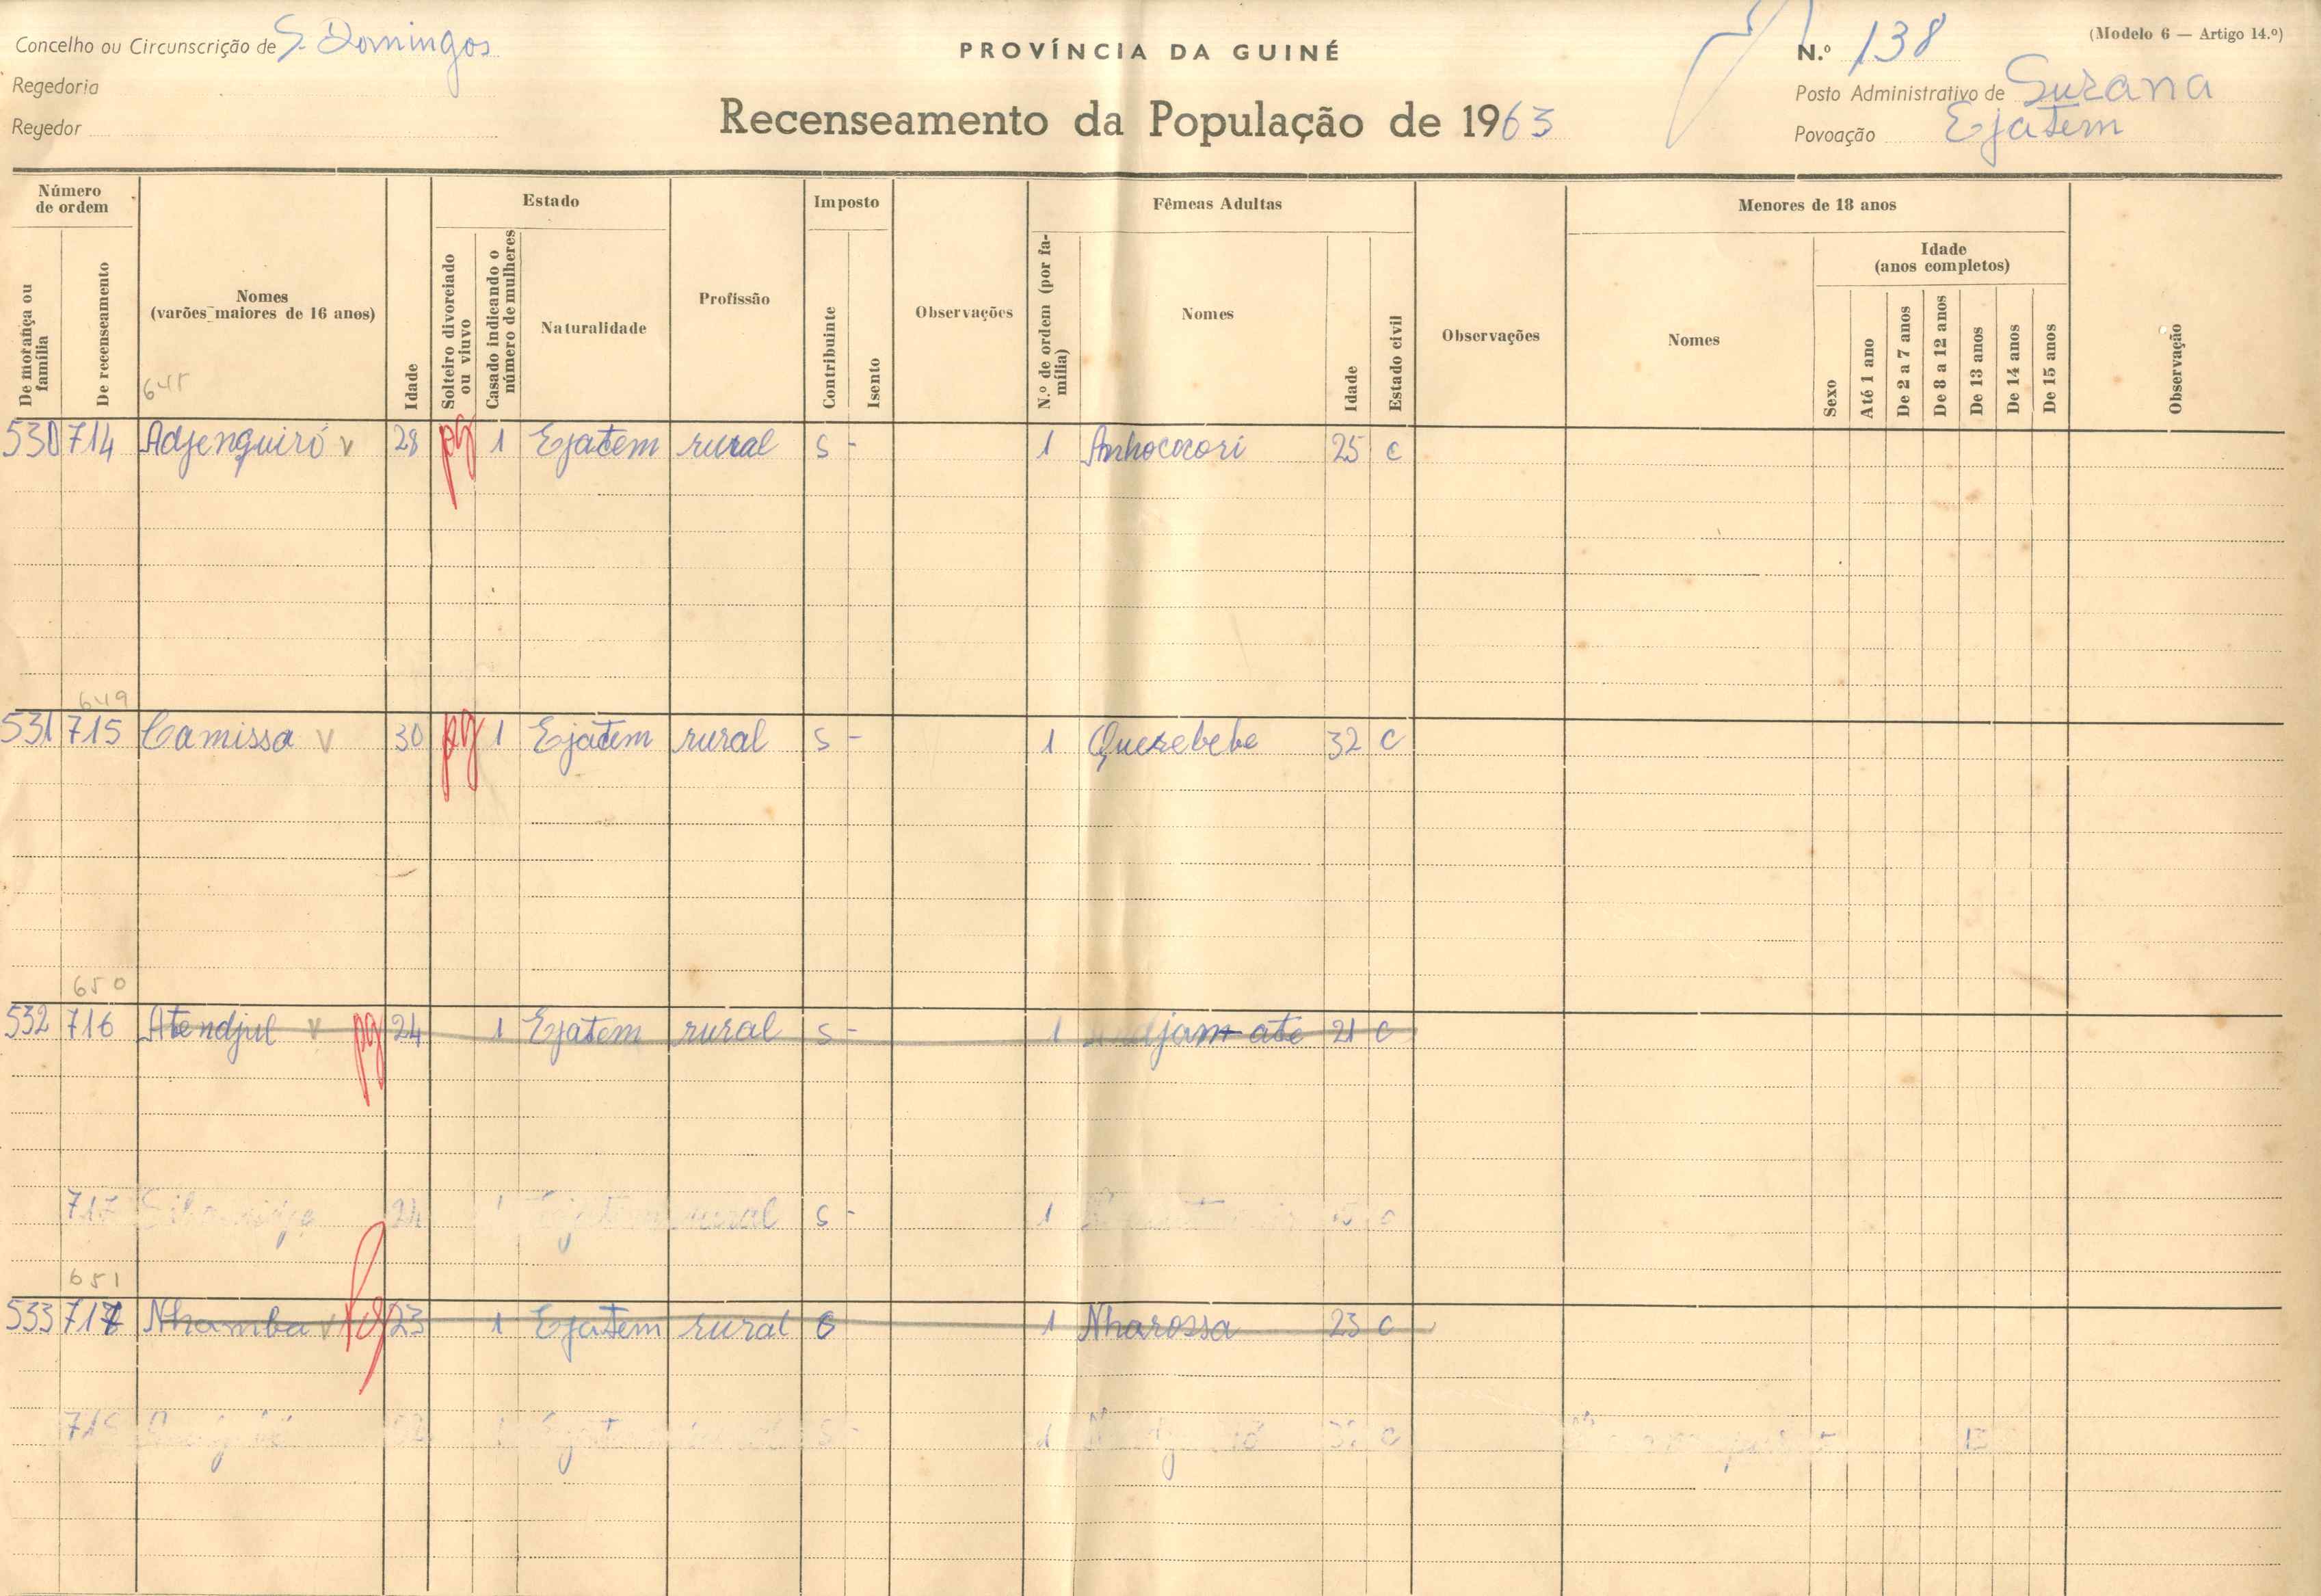 Concelho ou Circunscrição de S. Domingos
Regedoria
Regedor
PROVÍNCIA DA GUINÉ
Recenseamento da População de 1963
(Modelo 6 — Artigo 14.º)
N.º 138
Posto Administrativo de Suzana
Povoação Ejatem
Número de ordem
De morança ou família
De recenseamento
Nomes
(varões maiores de 16 anos)
Idade
Estado
Solteiro divorciado ou viuvo
Casado indicando o número de mulheres
Naturalidade
Profissão
Imposto
Contribuinte
Isento
Observações
Fêmeas Adultas
N.º de ordem (por família)
Nomes
Idade
Estado civil
Observações
Menores de 18 anos
Nomes
Sexo
Idade
(anos completos)
Até 1 ano
De 2 a 7 anos
De 8 a 12 anos
De 13 anos
De 14 anos
De 15 anos
Observação
530 714 Adjenquiró v 28 pg 1 Ejatem rural s - 1 Anhocori 25 c
649
531 715 Camissa v 30 pg 1 Ejatem rural s - 1 Querebebe 32 c
650
532 716 Atendjul v pg 24 1 Ejatem rural s - 1 21 c
717 24 1 Ejatem rural s - 1
651
533 717 Nhamba v pg 23 1 Ejatem rural 1 Nharossa 23 c
1 Ejatem s - 1 c 13